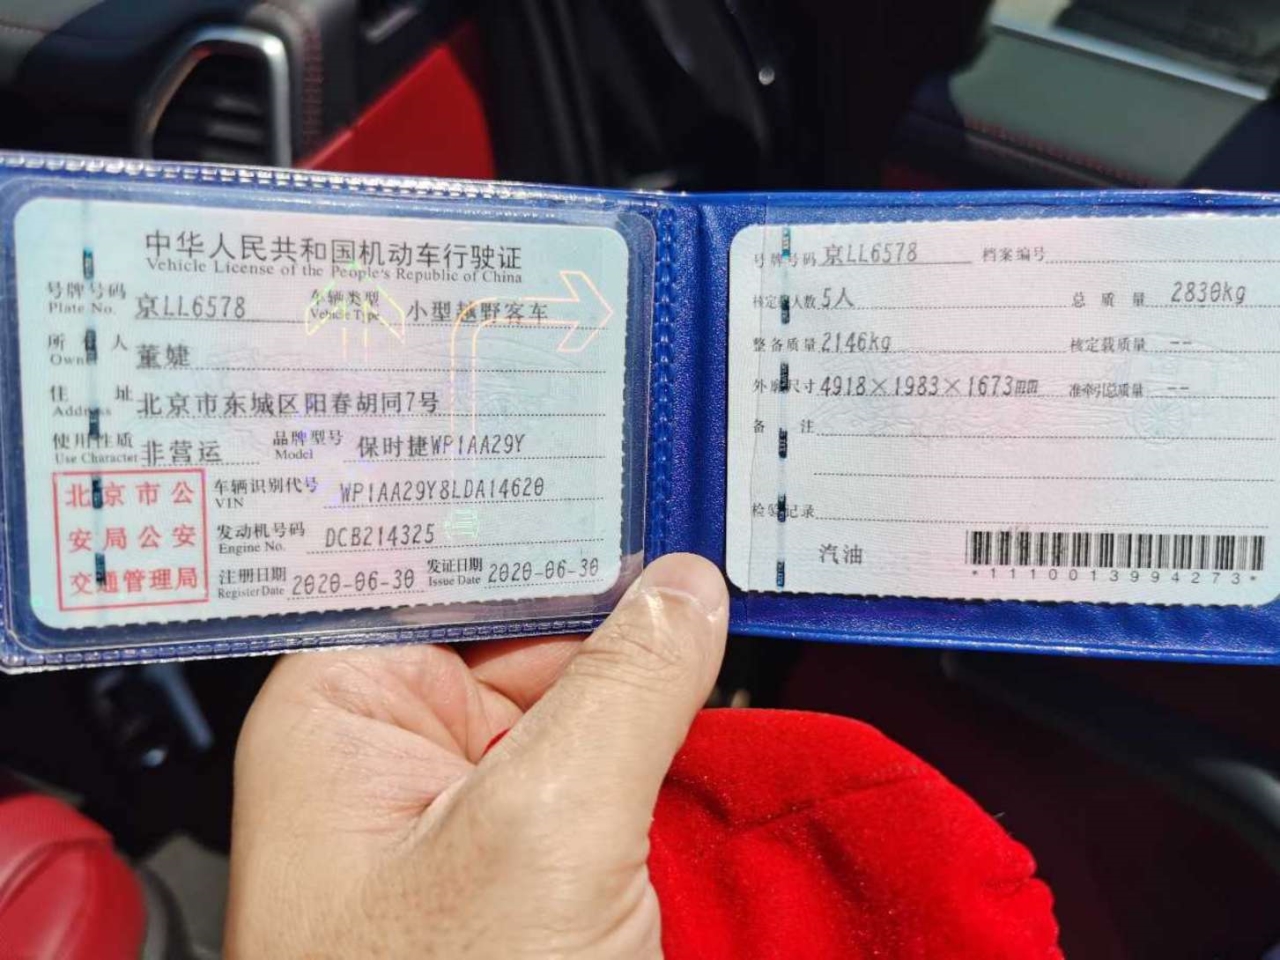 中华人民共和国机动车行驶证
Vehicle License of the People's Republic of China
号牌号码 京LL6578 车辆类型 小型越野客车
Plate No. Vehicle Type
所有人 董婕
Owner
住址 北京市东城区阳春胡同7号
Address
使用性质 非营运 品牌型号 保时捷WP1AA29Y
Use Character Model
北京市公
安局公安
交通管理局
车辆识别代号 WP1AA29Y8LDA14620
VIN
发动机号码 DCB214325
Engine No.
注册日期 2020-06-30 发证日期 2020-06-30
Register Date Issue Date
号牌号码 京LL6578 档案编号
核定载人数 5人 总质量 2830kg
整备质量 2146kg 核定载质量 --
外廓尺寸 4918×1983×1673mm 准牵引总质量 --
备注
检验记录
汽油
*1110013994273*